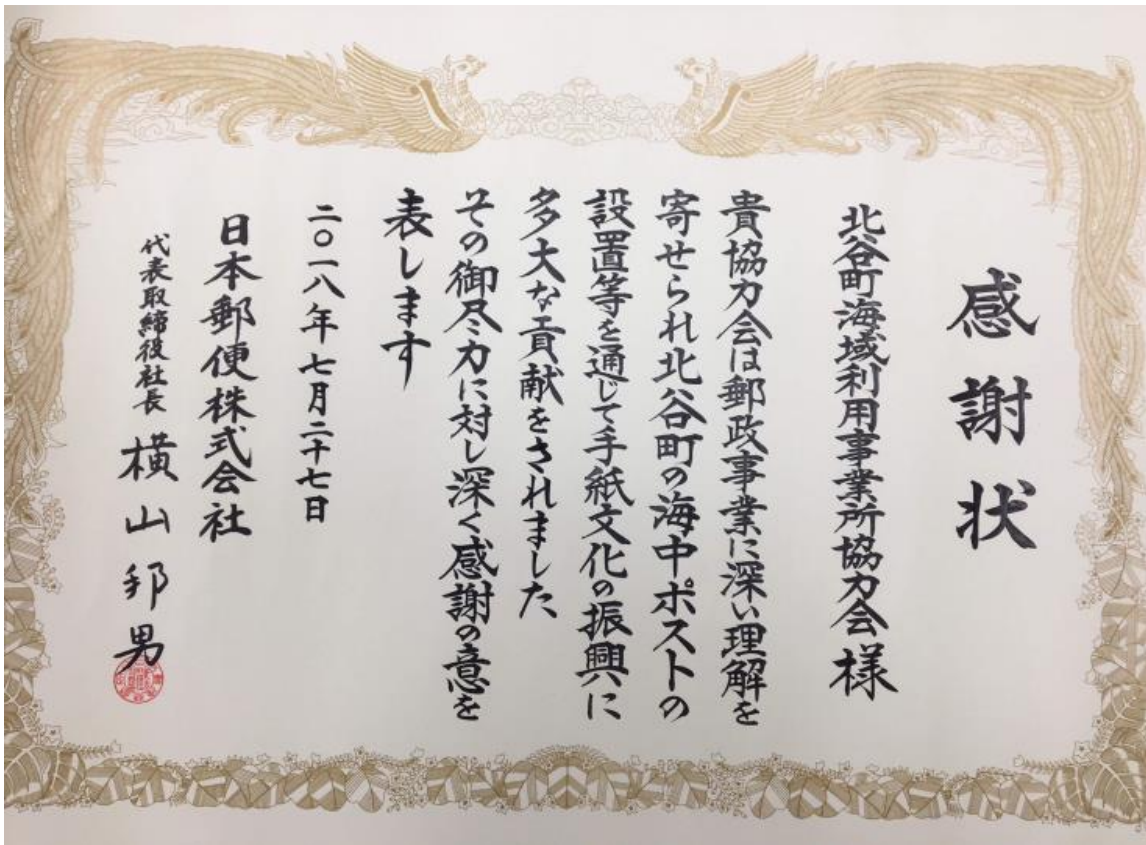 感謝状
北谷町海域利用事業所協力会様
貴協力会は郵政事業に深い理解を
寄せられ北谷町の海中ポストの
設置等を通じて手紙文化の振興に
多大な貢献をされました
その御尽力に対し深く感謝の意を
表します
二〇一八年七月二十七日
日本郵便株式会社
代表取締役社長 横山邦男